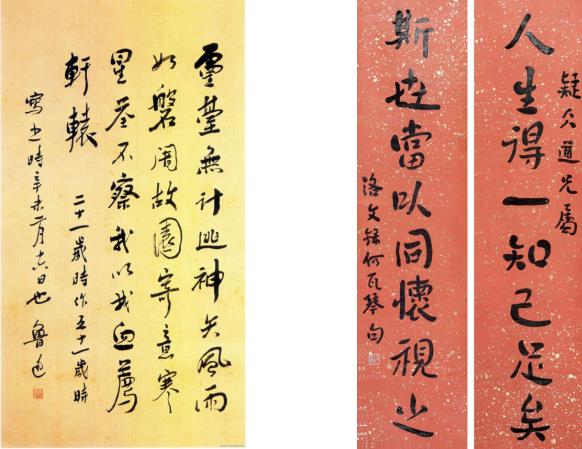 靈臺無計逃神矢風雨
如磐闇故園寄意寒
星荃不察我以我血薦
軒轅
二十一歲時作五十一歲時
寫之時辛未二月十六日也 魯迅
疑仌道兄屬
人生得一知己足矣
斯世當以同懷視之
洛文錄何瓦琴句